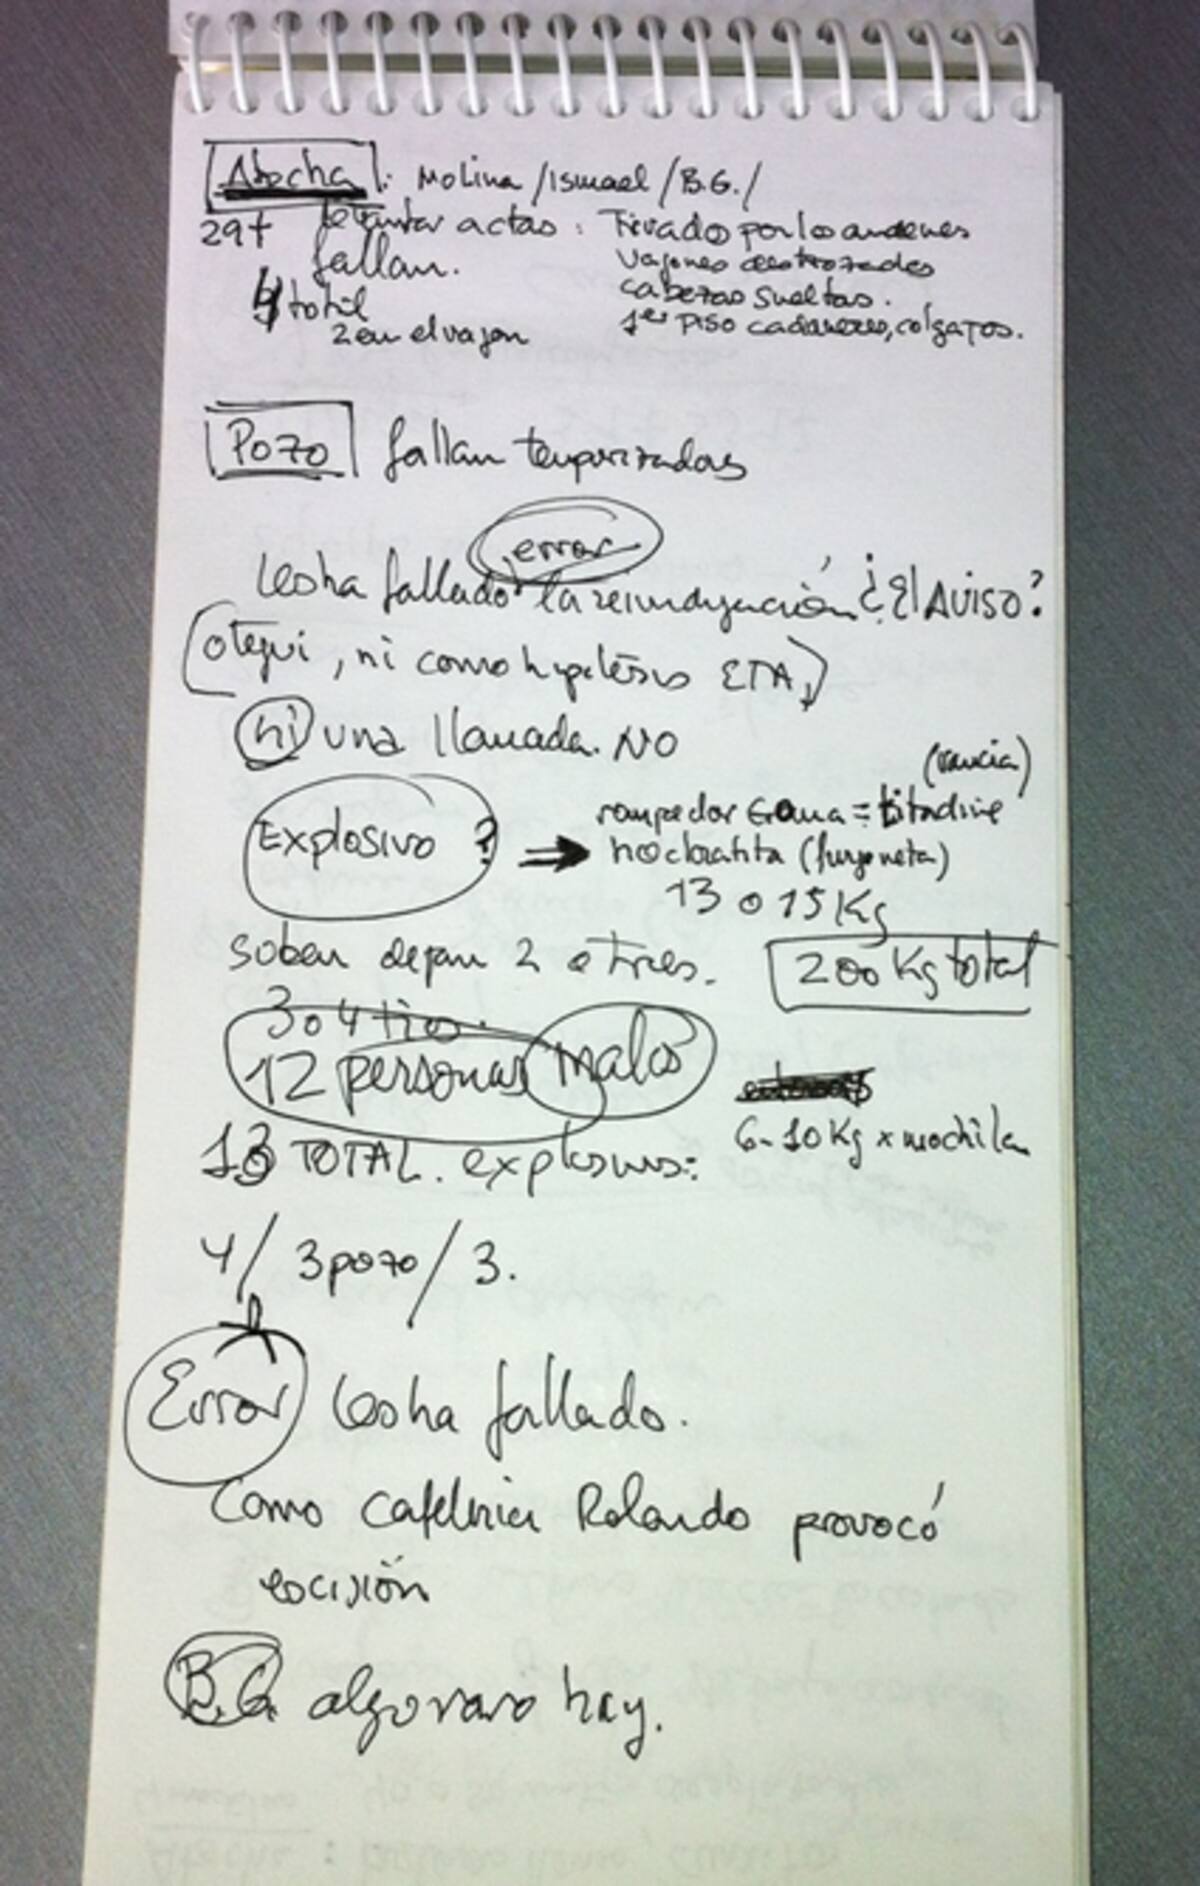 Atocha: Molina / Ismael / B.G. /
29 t levantar actas: Tirados por los andenes
fallan. vagones destrozados
4 total cabezas sueltas.
2 en el vagon 1er piso cadaveres, colgados.
Pozo fallan temporizadas
error
les ha fallado la reivindicación ¿El AVISO?
(otegui, ni como hipótesis ETA,)
ni una llamada. NO
(rancia)
Explosivo? ⇒ rompedor Goma = titadine
no cloratita (furgoneta)
13 o 15 Kg
suben dejan 2 o tres. 200 Kg total
3 o 4 tios.
12 personas malos
6-10 Kg x mochila
13 TOTAL. explosivos:
4/ 3 pozo / 3.
Error les ha fallado.
Como Cafetería Rolando provocó
escisión
B.G. algo raro hay.